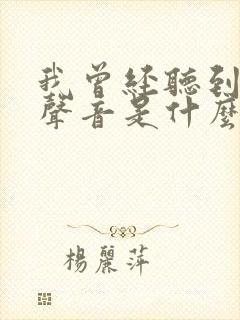 我曾经聽到
聲音是什麼
楊麗萍